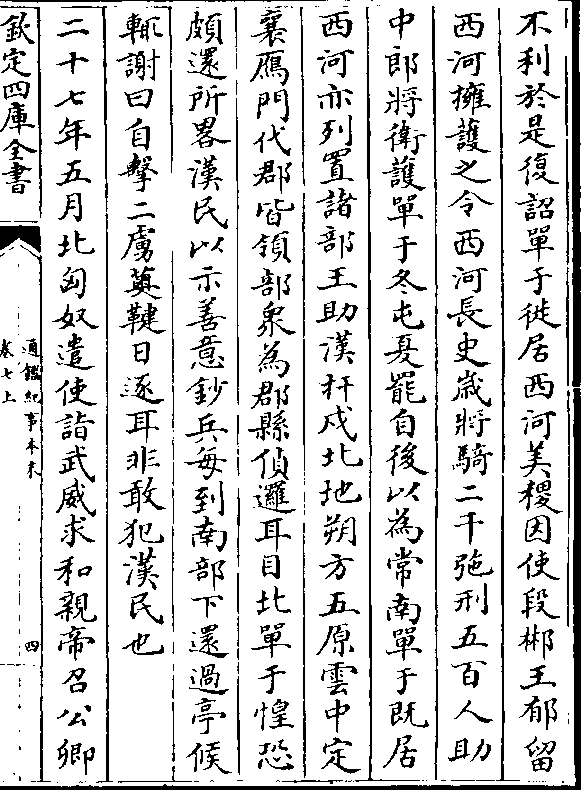 不利於是復詔單于徙居西河美稷因使段郴王郁留
西河擁護之令西河長史歲將騎二千弛刑五百人助
中郎將衛護單于冬屯夏罷自後以為常南單于既居
西河亦列置諸部王助漢扞戍北地朔方五原雲中定
襄鴈門代郡皆領部衆為郡縣偵邏耳目北單于惶恐
頗還所畧漢民以示善意鈔兵每到南部下還過亭候
輒謝曰自擊亡虜薁鞬日逐耳非敢犯漢民也
二十七年五月北匈奴遣使詣武威求和親帝召公卿
欽定四庫全書
通鑑紀事本末
卷七上
四